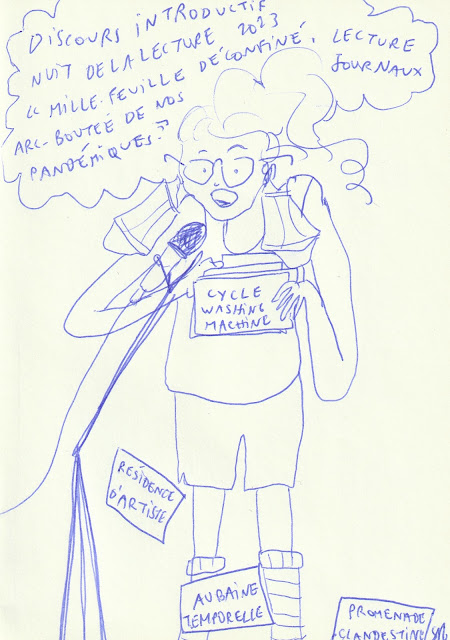 DISCOURS INTRODUCTIF
NUIT DE LA LECTURE 2023
" MILLE-FEUILLE DÉCONFINÉ,
ARC-BOUTEÉ DE NOS
PANDÉMIQUES."
LECTURE
JOURNAUX
CYCLE
WASHING
MACHINE
RESIDENCE
D'ARTISTE
AUBAINE
TEMPORELLE
PROMENADE
CLANDESTINE